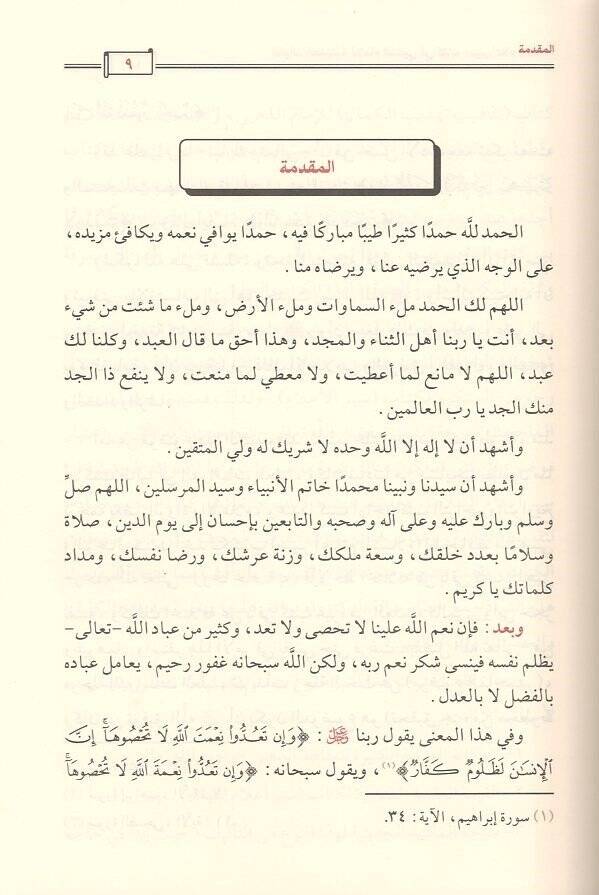 المقدمة
٩
المقدمة
الحمد للَّه حمدًا كثيرًا طيبًا مباركًا فيه، حمدًا يوافي نعمه ويكافئ مزيده،
على الوجه الذي يرضيه عنا، ويرضاه منا.
اللهم لك الحمد ملء السماوات وملء الأرض، وملء ما شئت من شيء
بعد، أنت يا ربنا أهل الثناء والمجد، وهذا أحق ما قال العبد، وكلنا لك
عبد، اللهم لا مانع لما أعطيت، ولا معطي لما منعت، ولا ينفع ذا الجد
منك الجد يا رب العالمين.
وأشهد أن لا إله إلا اللَّه وحده لا شريك له ولي المتقين.
وأشهد أن سيدنا ونبينا محمدًا خاتم الأنبياء وسيد المرسلين، اللهم صلِّ
وسلم وبارك عليه وعلى آله وصحبه والتابعين بإحسان إلى يوم الدين، صلاة
وسلامًا بعدد خلقك، وسعة ملكك، وزنة عرشك، ورضا نفسك، ومداد
كلماتك يا كريم.
وبعد: فإن نعم اللَّه علينا لا تحصى ولا تعد، وكثير من عباد اللَّه -تعالى-
يظلم نفسه فينسى شكر نعم ربه، ولكن اللَّه سبحانه غفور رحيم، يعامل عباده
بالفضل لا بالعدل.
وفي هذا المعنى يقول ربنا عز وجل: ﴿وَإِن تَعُدُّوا۟ نِعْمَتَ ٱللَّهِ لَا تُحْصُوهَآ ۗ إِنَّ
ٱلْإِنسَـٰنَ لَظَلُومٌ كَفَّارٌ﴾(١)، ويقول سبحانه: ﴿وَإِن تَعُدُّوا۟ نِعْمَةَ ٱللَّهِ لَا تُحْصُوهَآ ۗ
(١) سورة إبراهيم، الآية: ٣٤.